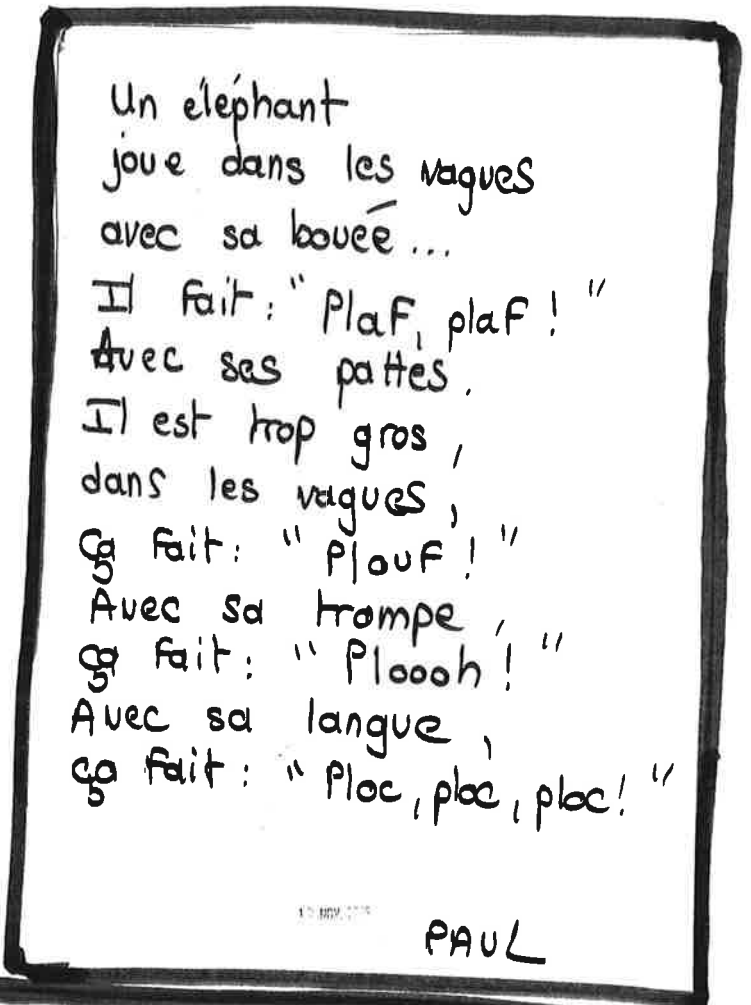 Un éléphant
joue dans les vagues
avec sa bouée...
Il fait : " Plaf, plaf ! "
Avec ses pattes.
Il est trop gros,
dans les vagues,
ça fait : " Plouf ! "
Avec sa trompe,
ça fait : " Ploooh ! "
Avec sa langue,
ça fait : " Ploc, ploc, ploc! "
NOV.
PAUL